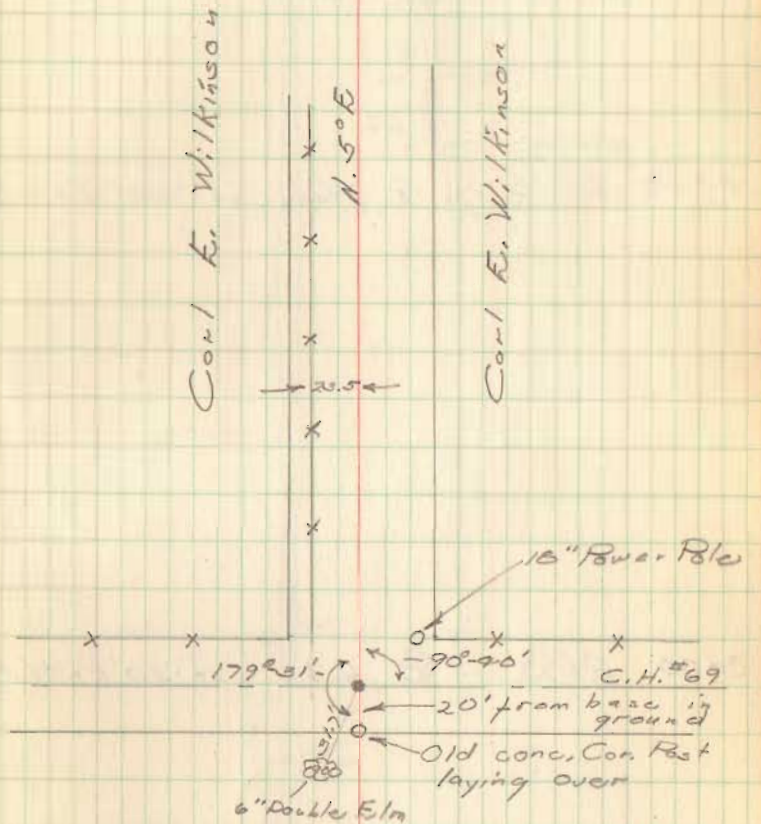 Carl E. Wilkinson
N. 5° E
Carl E. Wilkinson
18" Power Pole
179°-31'
90°-40'
C.H. #69
20' from base in
ground
Old conc. Cor. Post
laying over
6" Double Elm